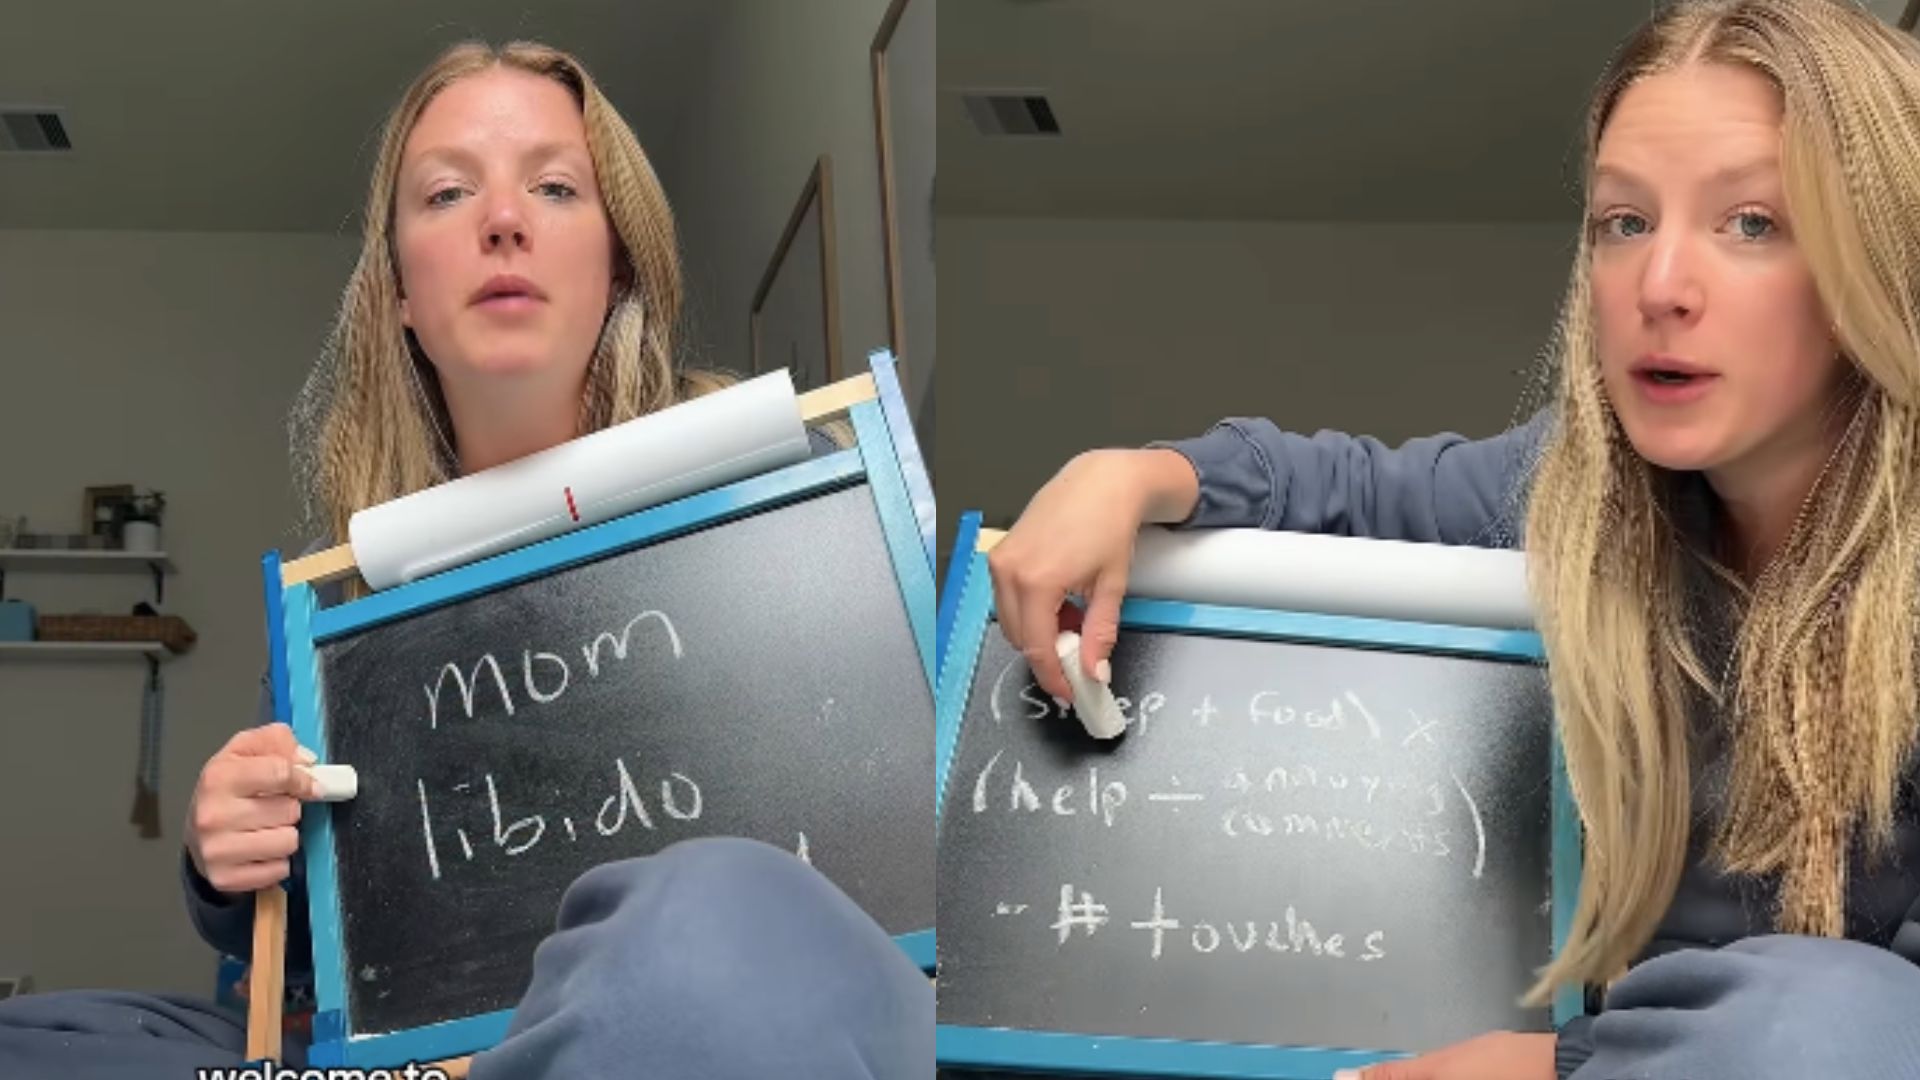 mom
libido
welcome to
(sleep + food) x
(help ÷ annoying
comments)
- # touches